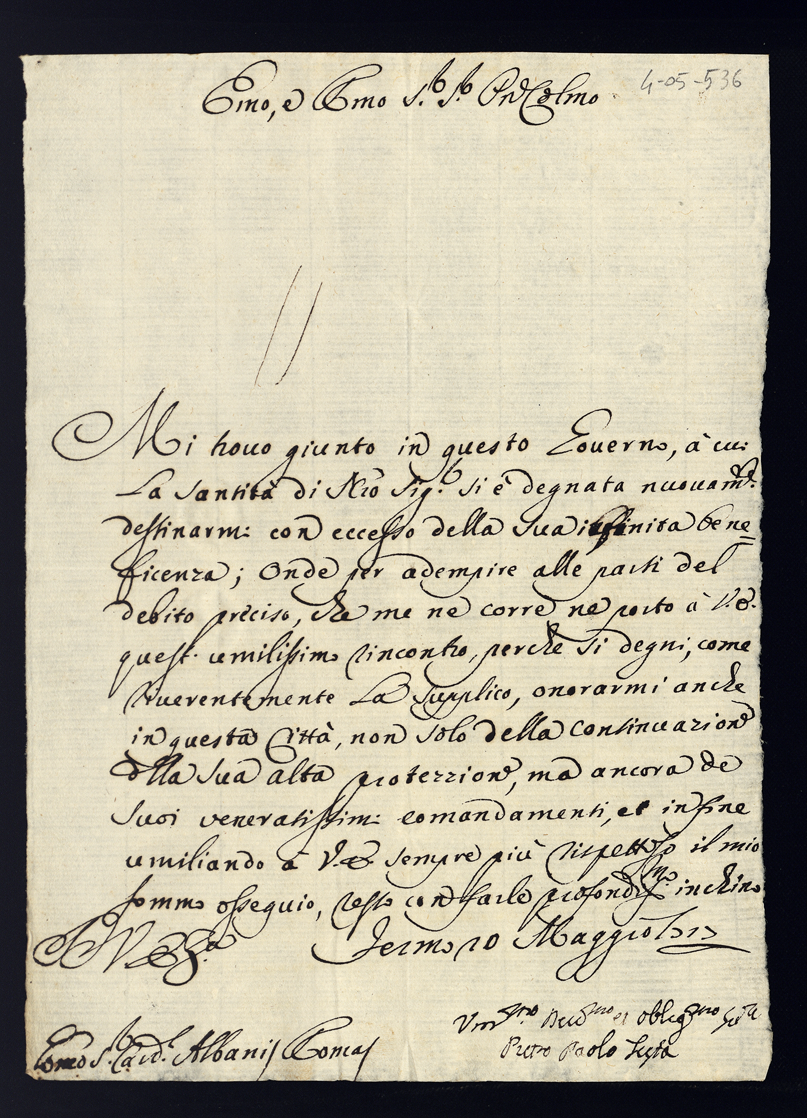 4-05-536
Emo, e Rmo S.r S.r Prõn Colmo
Mi trovo giunto in questo Governo, à cui
La Santità di Nrõ Sig.r si è degnata nuovam.te
destinarmi con eccesso della Sua infinita bene=
ficenza; Onde per adempire alle parti del
debito preciso, che me ne corre ne porto à V.E.
quest' umilissimo rincontro, perche si degni, come
riverentemente La Supplico, onorarmi anche
in questa Città, non solo della continuazione
della Sua alta protezzione, ma ancora de
Suoi veneratissimi comandamenti, et in fine
umiliando à V.E. sempre più rispettoso il mio
sommo ossequio, resto con farle profondis.mo inchino
D V. E. Fermo 10 Maggio
Um.mo Dev.mo et oblig.mo Ser.re
Emo S.r Card.l Albani Roma Pietro Paolo Testa